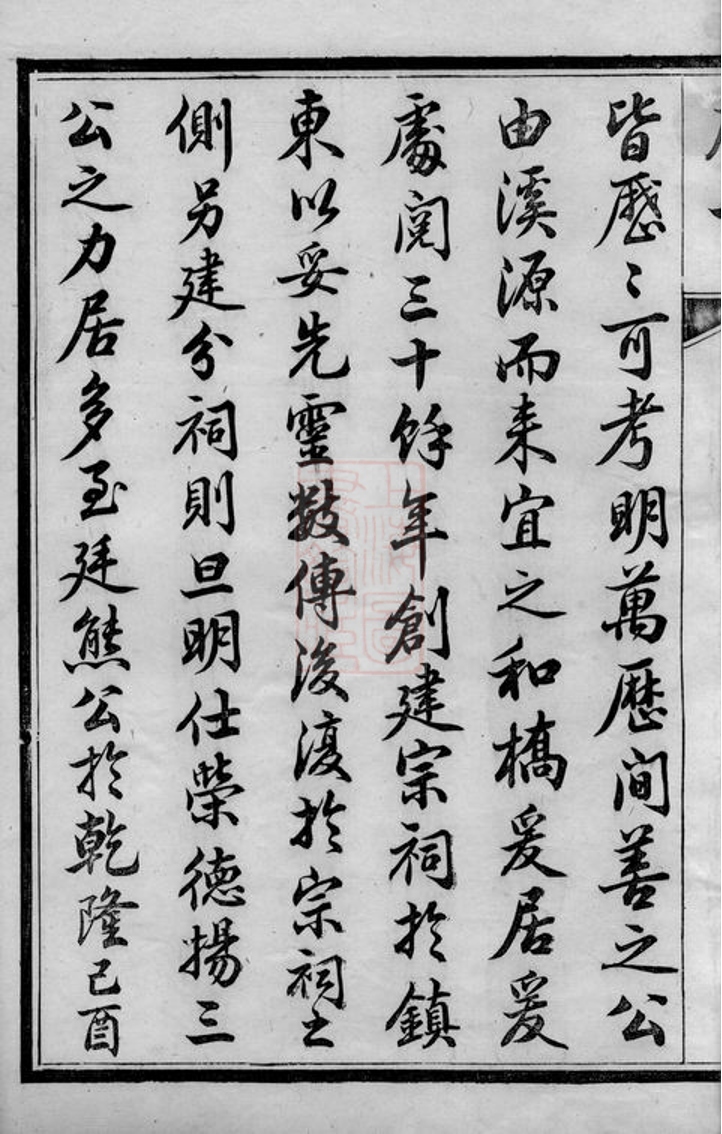 皆歷〻可考明萬歷间善之公
由溪源而来宜之和橋爰居爰
處閱三十餘年創建宗祠於鎮
東以妥先靈數傳後復於宗祠之
側另建分祠則旦明仕榮德揚三
公之力居多至廷熊公於乾隆己酉